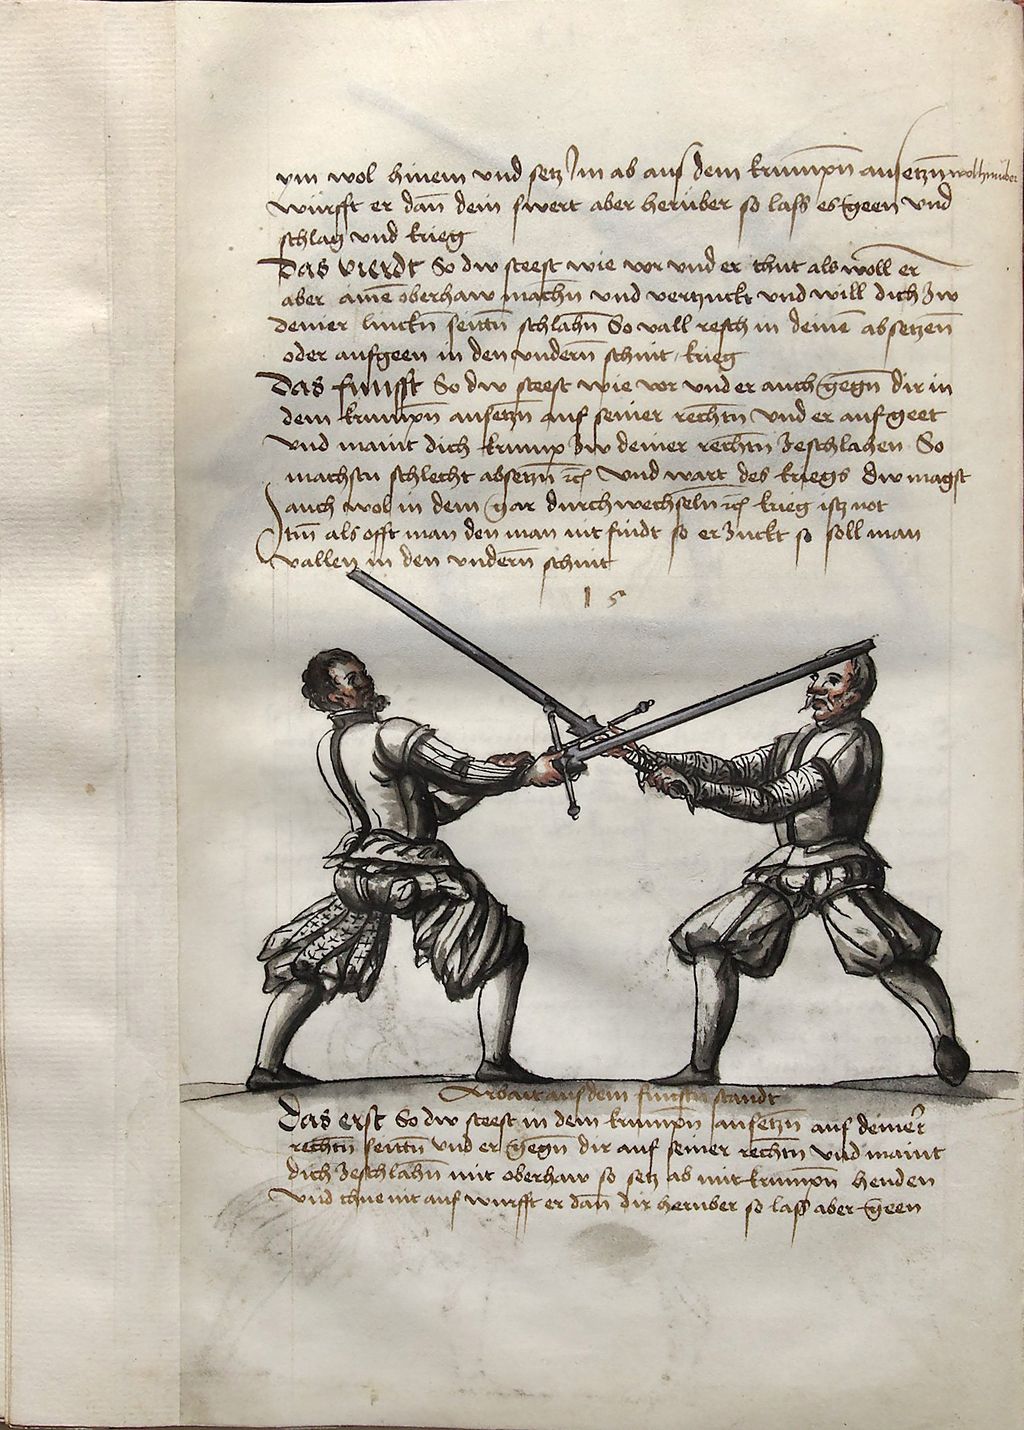 ym wol hinein und setz Im ab aus dem krumpn̄ ansetzn̄
wurfft er dan̄ dem swert aber heruber so lass es geen vnd
schlag vnd krieg
Das vierdt So dw steest wie vor vnd er thut als woll er
aber ainē oberhaw machn̄ vnd vertzuckt vnd will dich zw
deiner linckn̄ seittn̄ schlahn̄ So vall resch in deinē absetzen̄
oder aufgeen in den vndern̄ schnit krieg
Das funfft So dw steest wie vor vnd er auch gegn̄ dir in
dem krumpn̄ ansetzn̄ auf seiner rechtn̄ vnd er aufgeet
vnd maint dich krump zw deiner rechtn̄ zeschlahen So
machstu schlecht absetzn̄ rc̄ vnd wart des kriegs dw magst
auch wol in dem gar durchwechseln̄ rc̄ krieg ist not
Itm̄ als offt man den man nit findt so er zuckt so soll man
vallen in den vndern̄ schnit
15
Arbait aus dem funftn̄ standt
Das erst So dw steest in dem krumpn̄ ansetzn̄ auf deiner
rechtn̄ seittn̄ vnd er gegn̄ dir auf seiner rechtn̄ vnd maint
dich zeschlahn̄ mit oberhaw so setz ab mit krumpn̄ henden
vnd thue nit auf wurfft er dan̄ dir heruber so lass aber geen